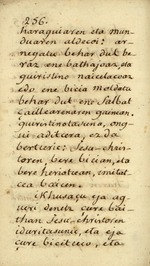 236.
haraguiaren eta mun
duaren aldecoi: ar
negatu behar dut be
raz ene bathajoaz, eta
guiristino naicelacoaz
edo ene bicia moldatu
behar dut ene Salbat
çaillearenaren gainean.
guiristinotasuna,
ezda
bertceric: Jesu-chris-
toren, bere bician, eta
bere heriotcean, imitat
cea baicen.
Ikhusaçu eja
guri denetz çure bai
than Jesu-christoren
iduritasunic, eta eja
çure bicitceco, eta